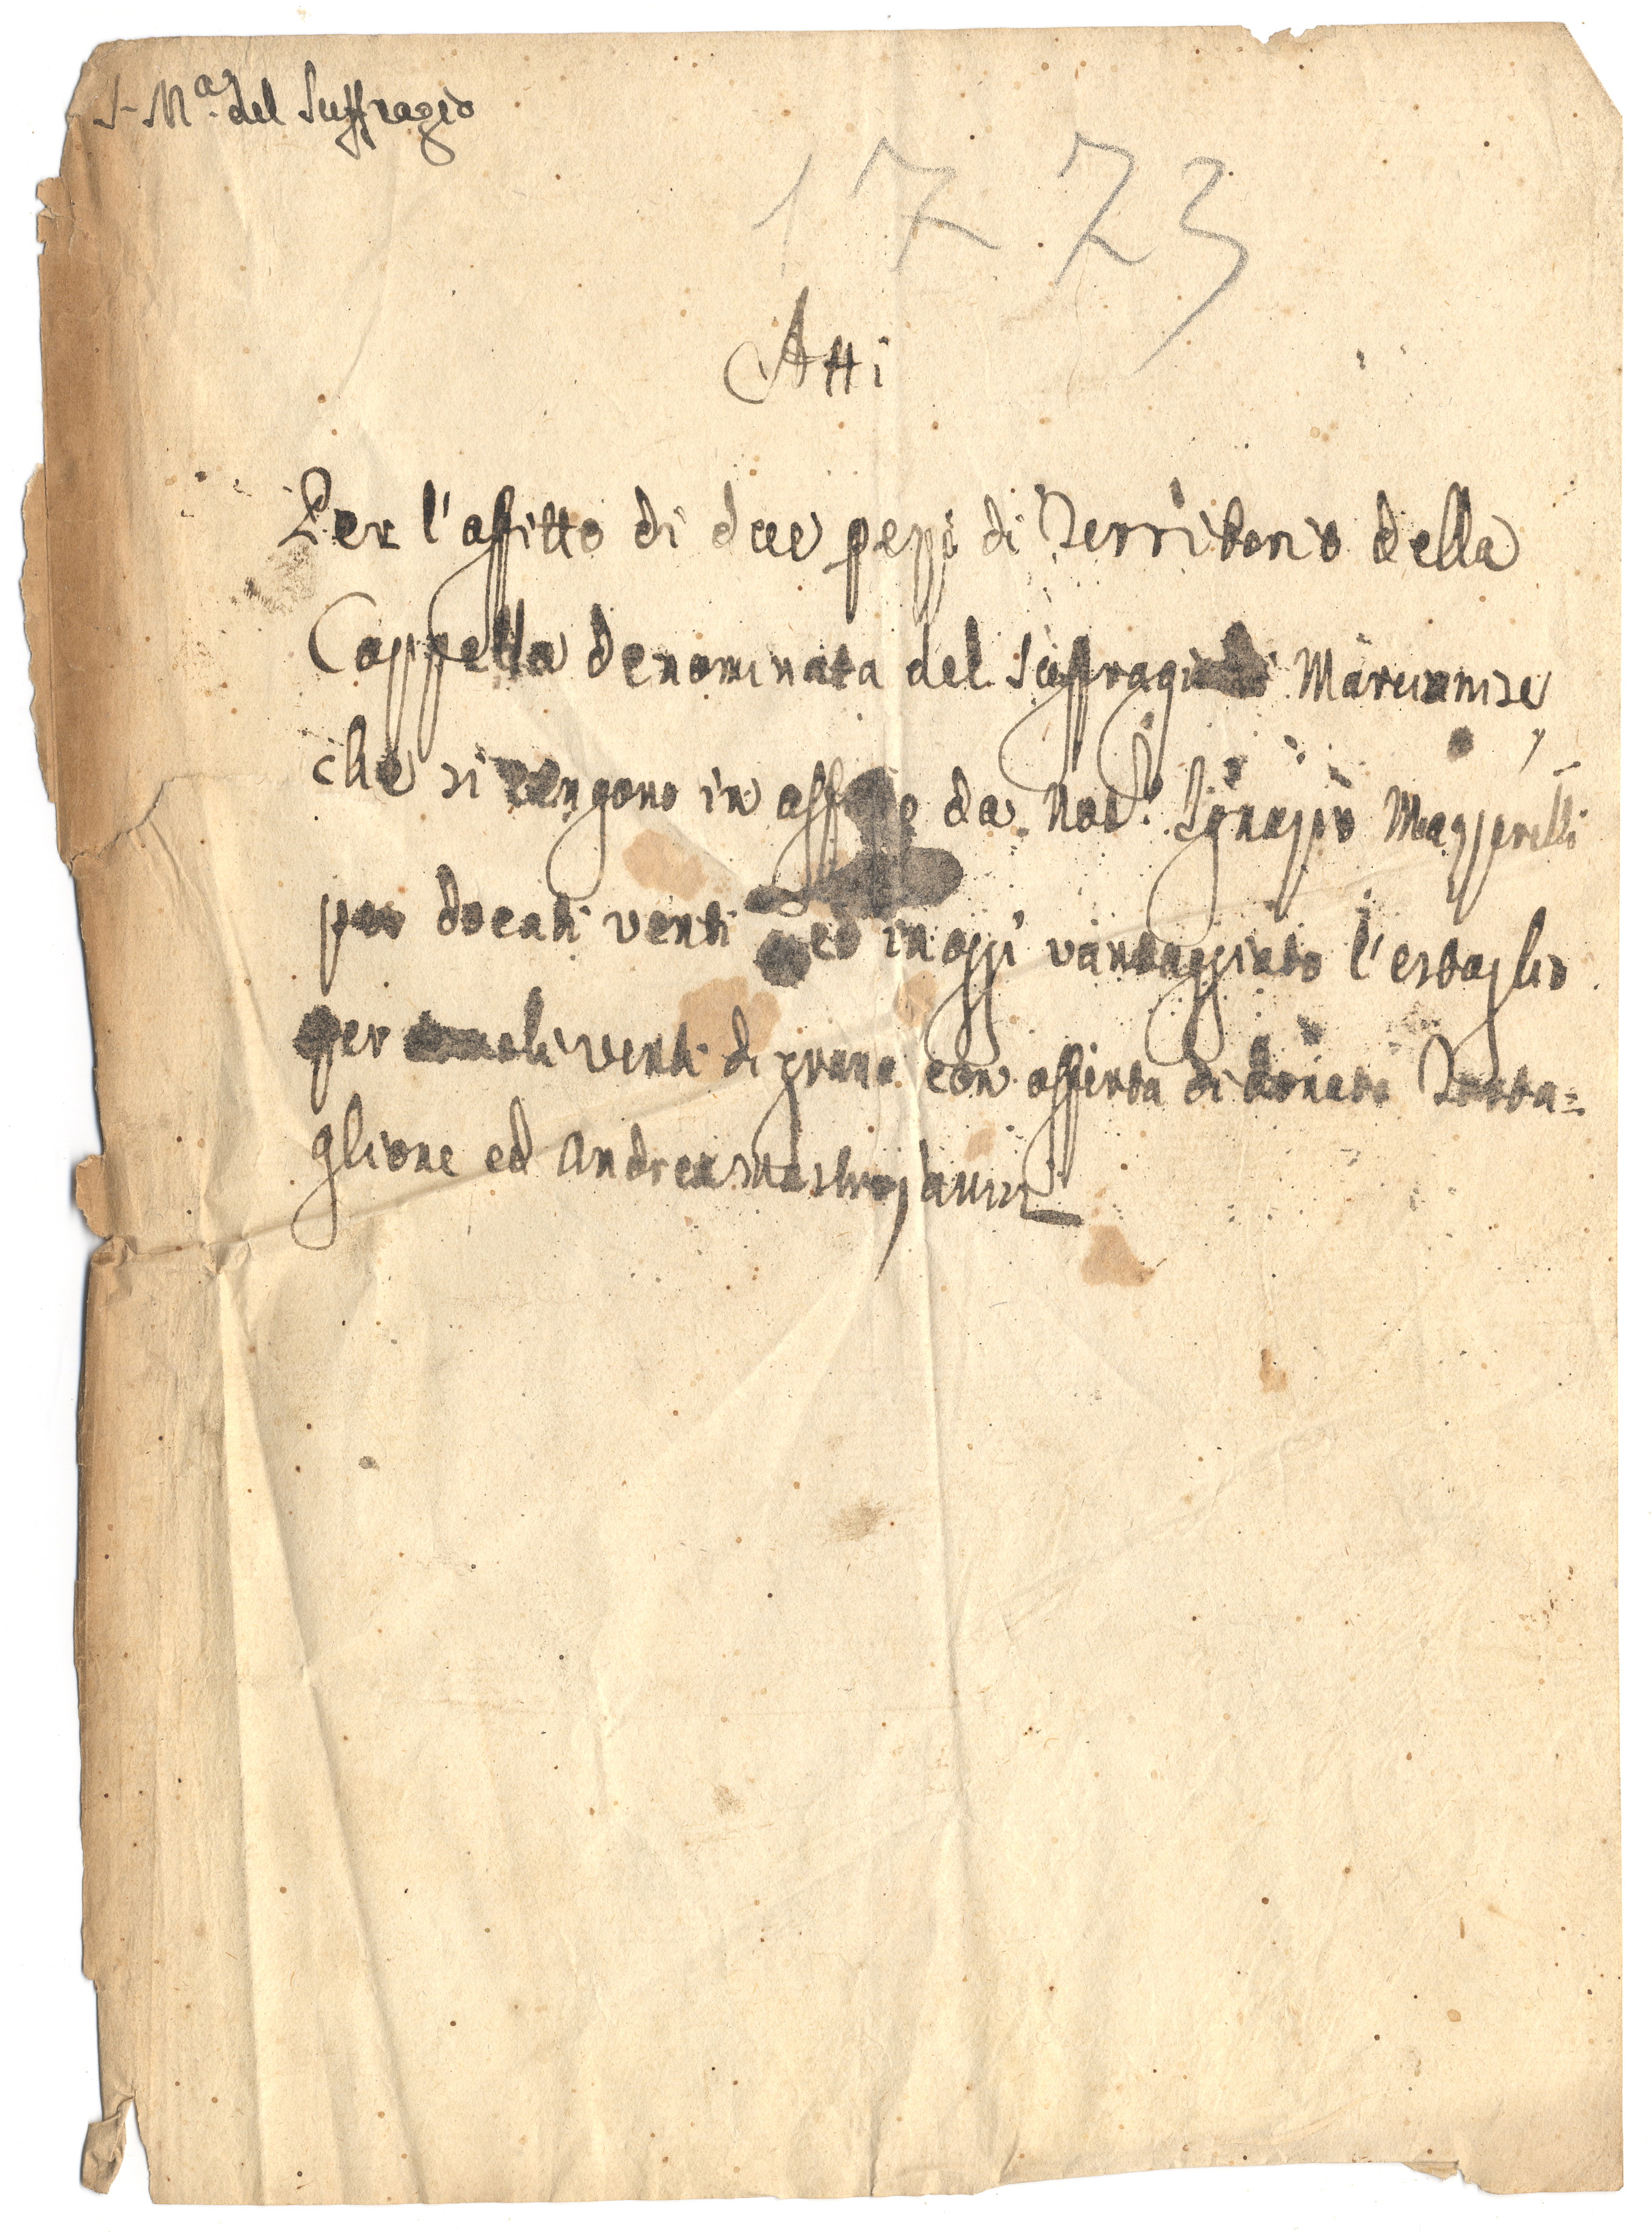 S. M.ª del Suffragio
1773
Atti
Per l'affitto di due pezzi di Territorio della
Cappella denominata del Suffragio di Marcianise
che si tengono in affitto da Not.r Ignazio Mazzarelli
per docati venti ed in oggi vantaggiato l'estaglio
per tomoli venti di grano con offerta di Donato
glione ed Andrea